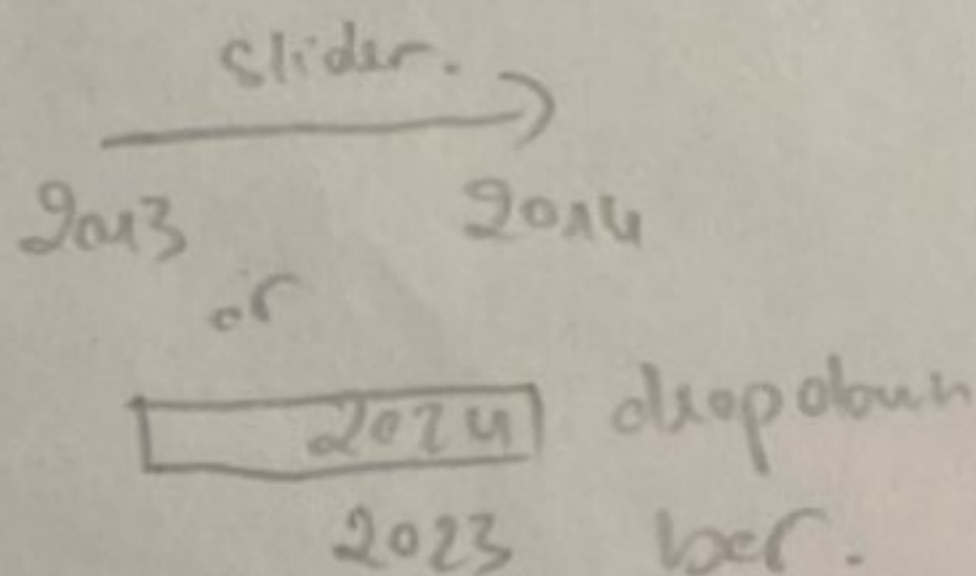 slider.
2013 2014
or
2024 dropdown
2023 bar.